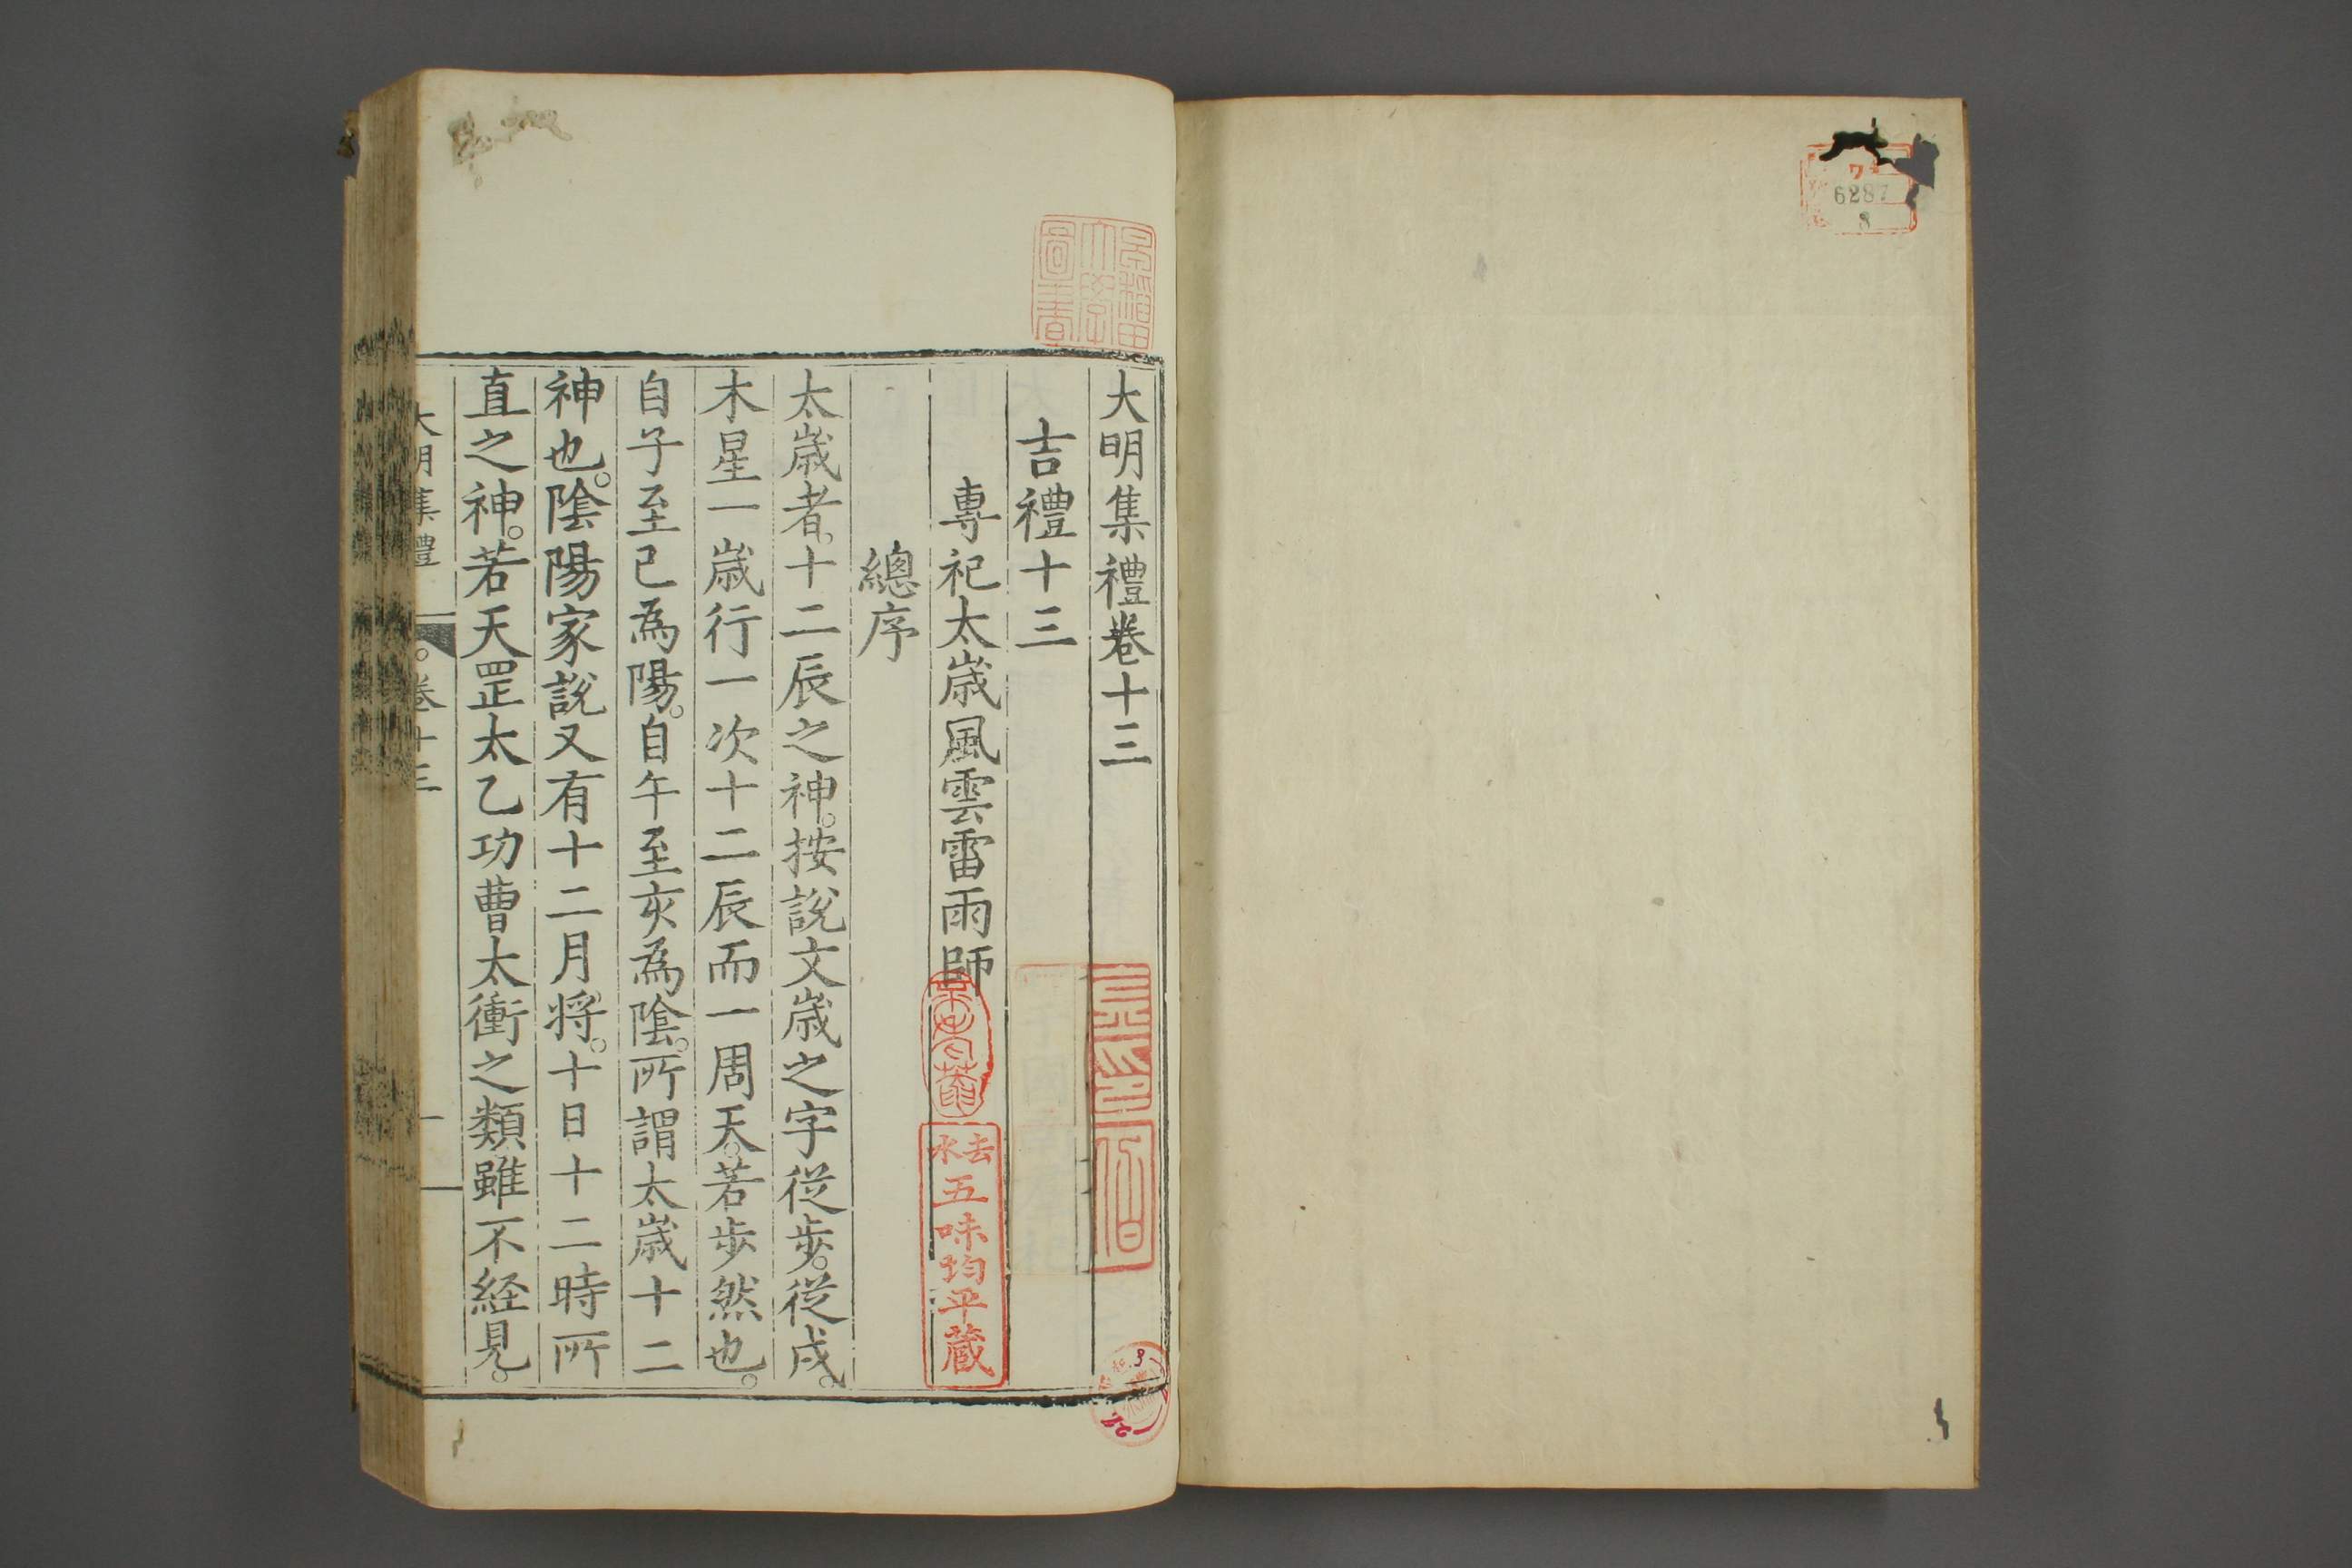 大明集禮卷十三
吉禮十三
專祀太歳風雲雷雨師
總序
太歳者。十二辰之神。按說文歳之字從歩。從戌。
木星一歳行一次十二辰而一周天。若歩然也。
自子至巳為陽。自午至亥為陰。所謂太歳十二
神也。陰陽家說又有十二月將。十日十二時所
直之神。若天罡太乙功曹太衝之類雖不經見。
大明集禮
卷十三
一
早稲田
大學
圖書
去水
五味均平蔵
6287
8